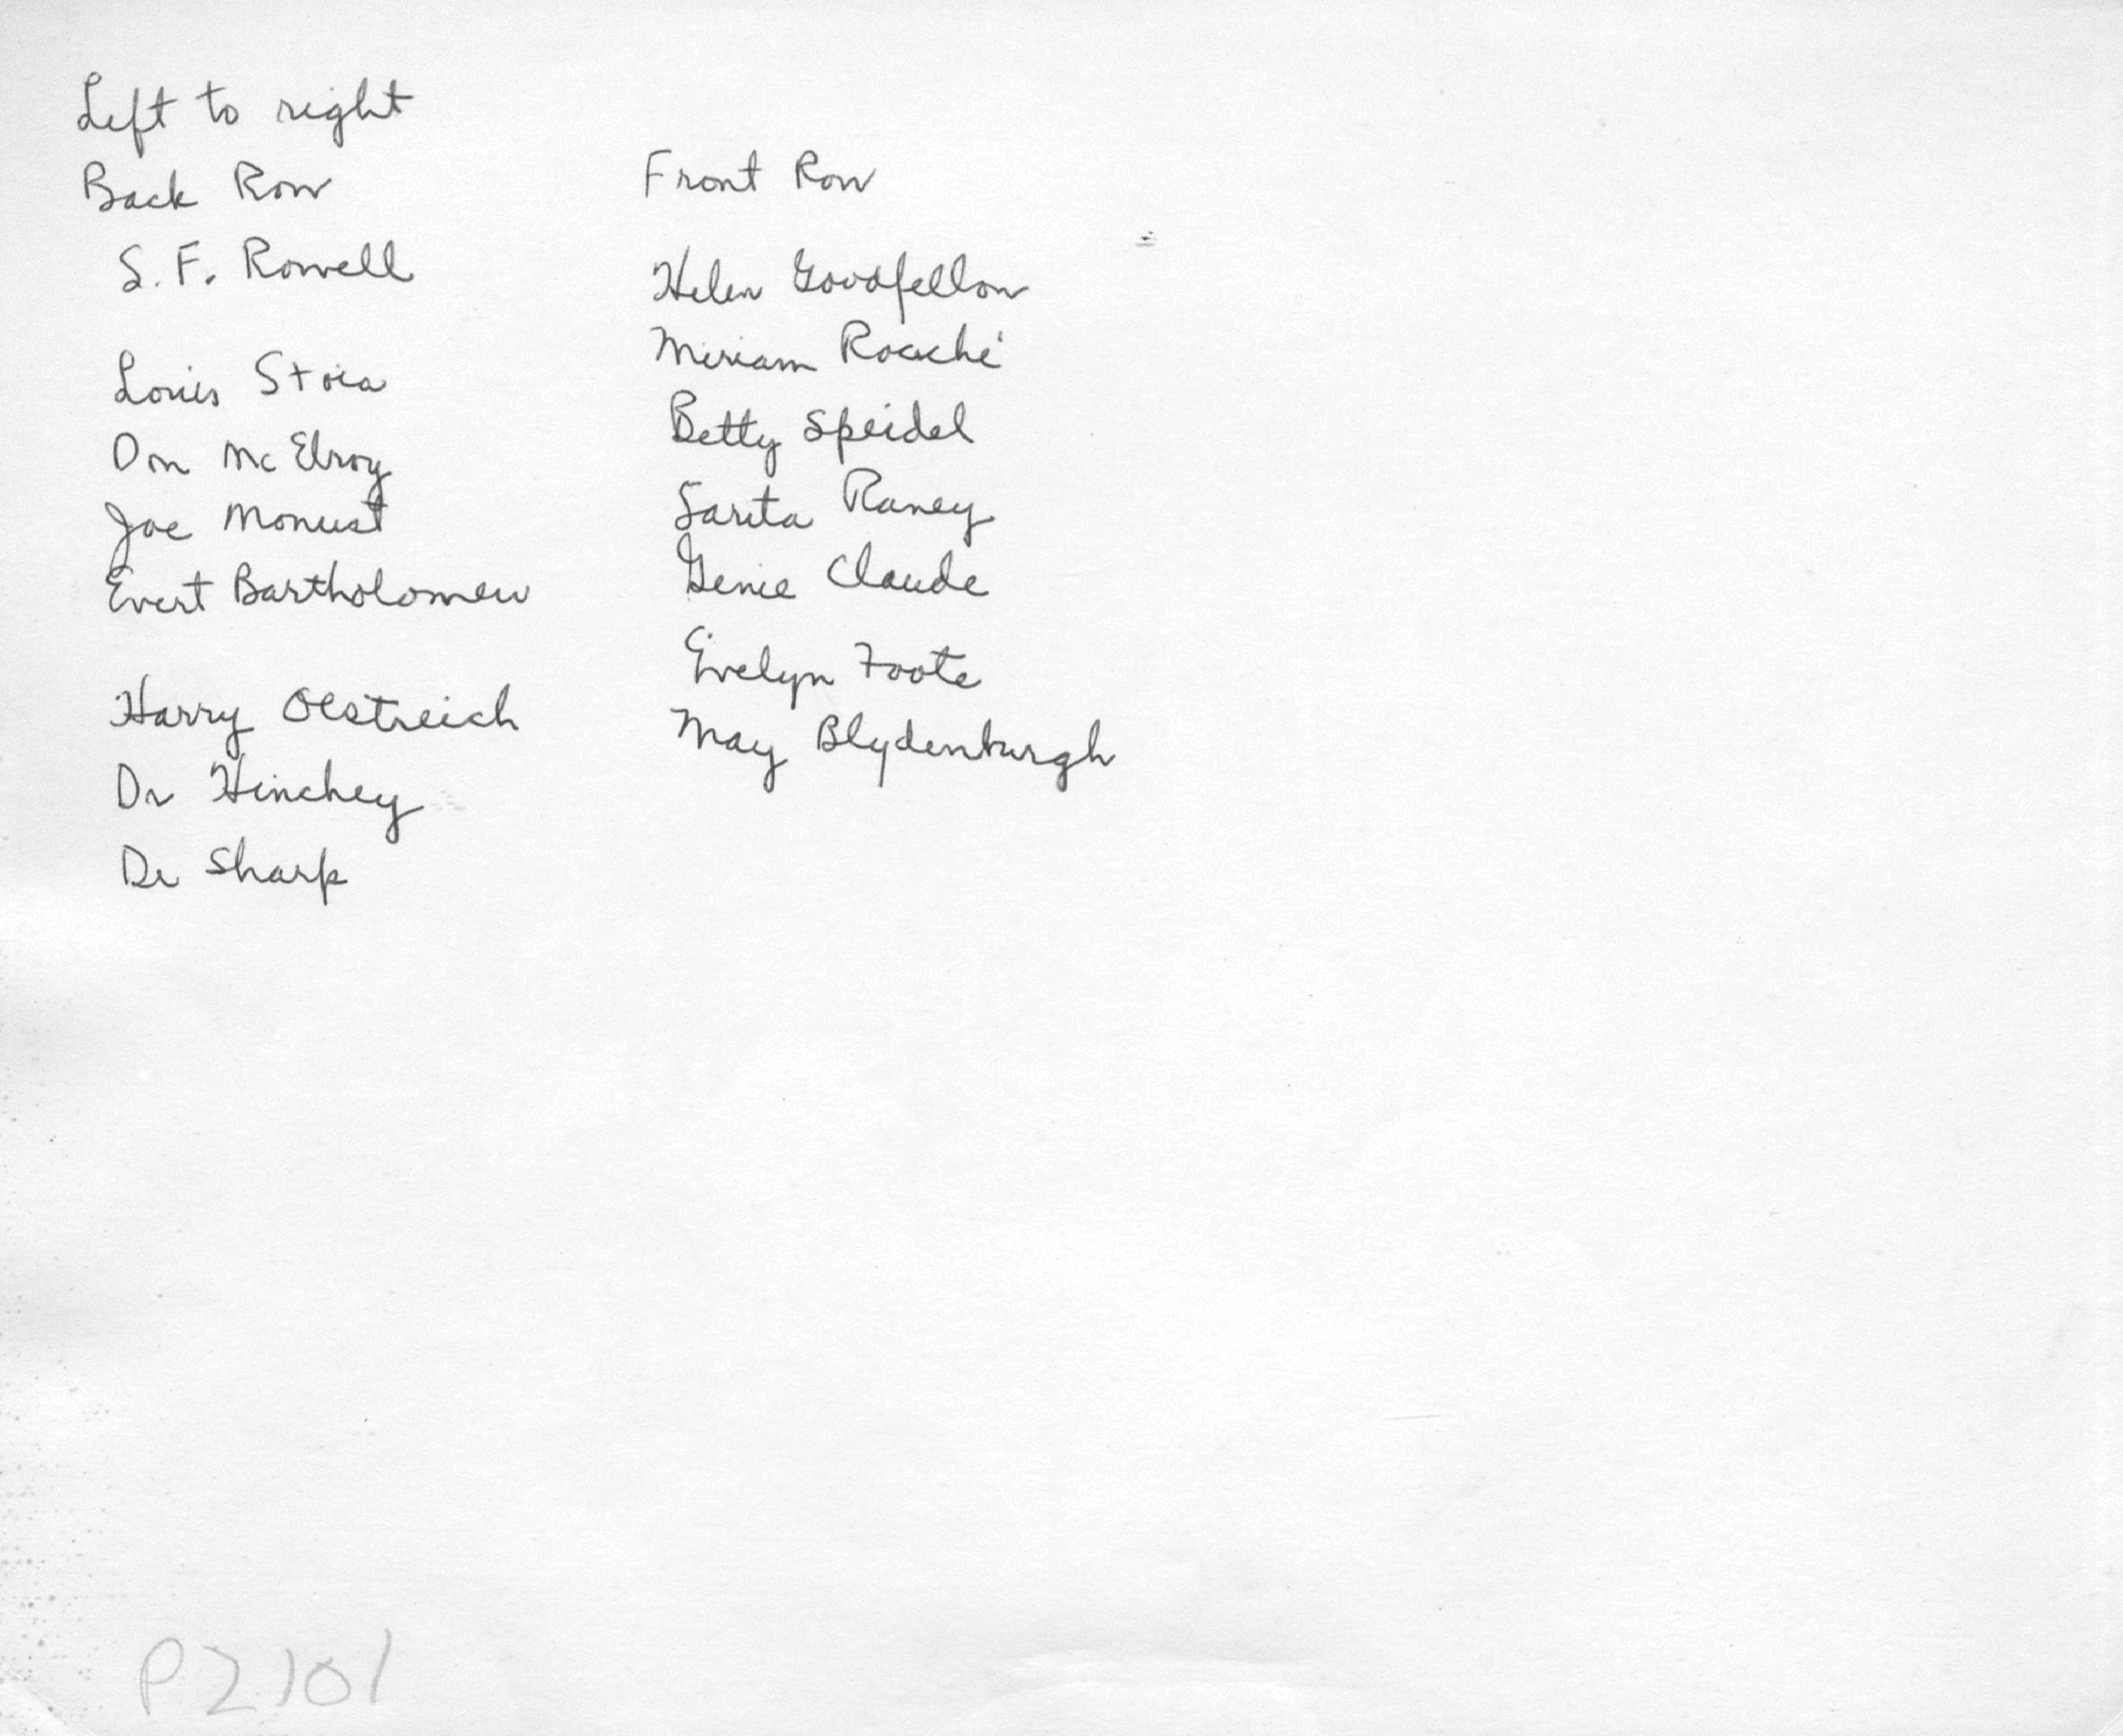 Left to right
Back Row
S. F. Rowell
Louis Stoia
Don McElroy
Joe Monust
Evert Bartholomew
Harry Oestreich
Dr Hinchey
Dr Sharp
Front Row
Helen Goodfellow
Miriam Roaché
Betty Speidel
Sarita Raney
Genie Claude
Evelyn Foote
May Blydenburgh
P2101